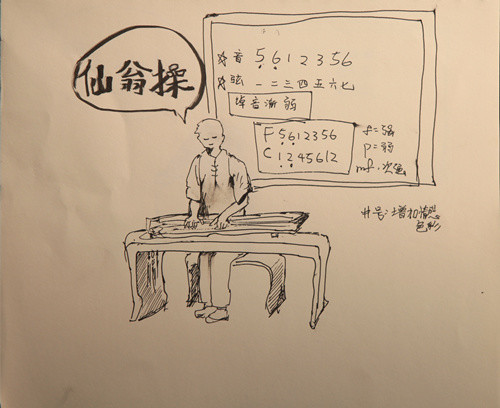 仙翁操
☆音 5 6 1 2 3 5 6
☆弦 一二三四五六七
噪音渐弱
F 5 6 1 2 3 5 6
C 1 2 4 5 6 1 2
f=强
p=弱
mf.次强
升号:增加情感
色彩